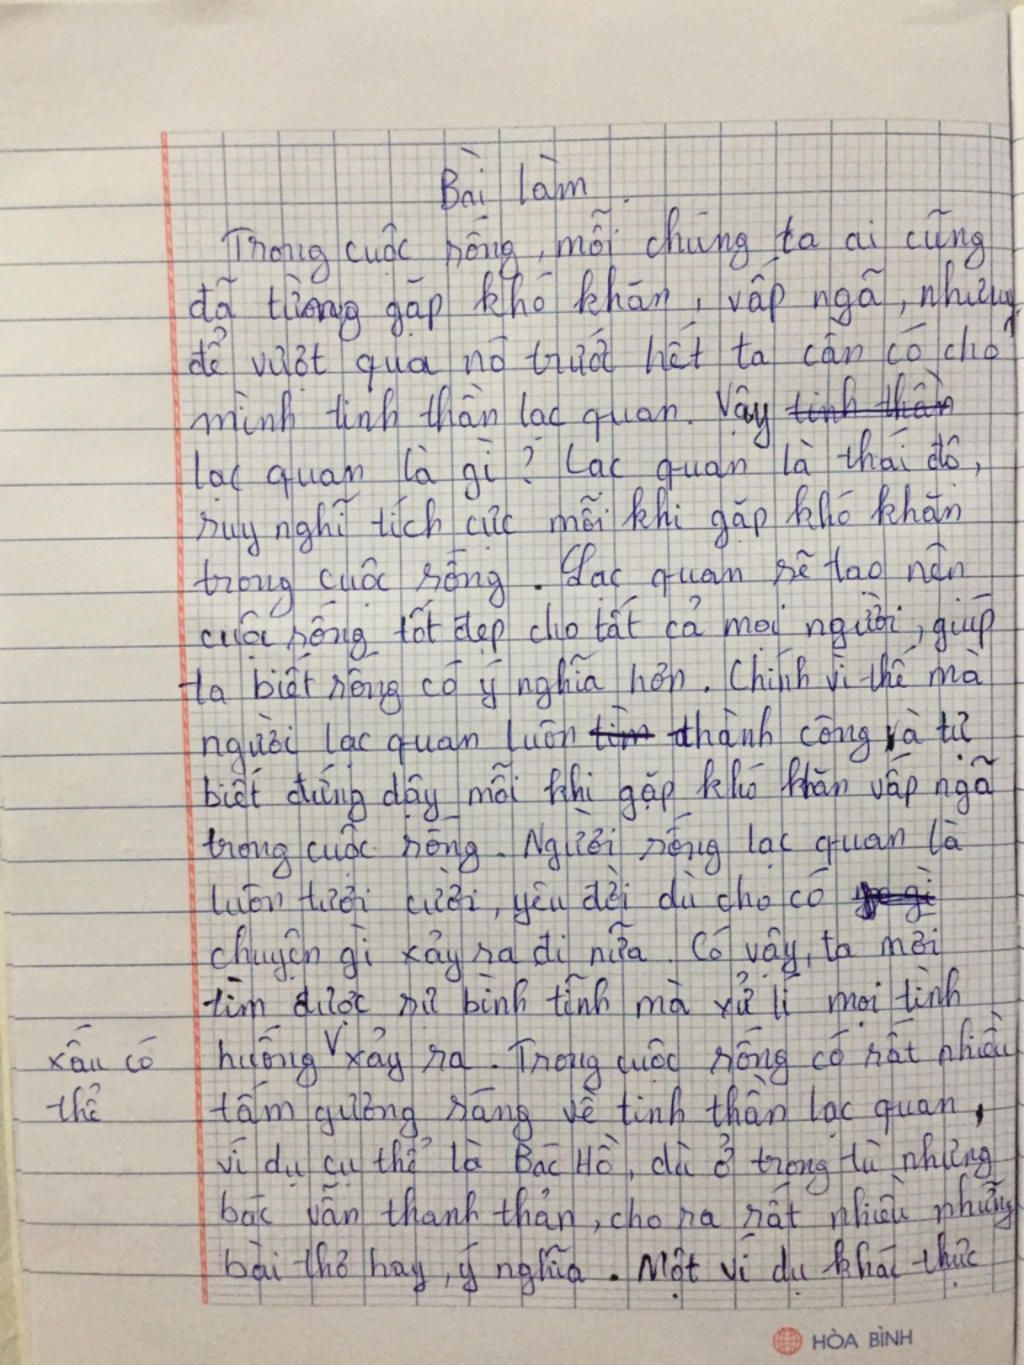 Bài làm.
Trong cuộc sống, mỗi chúng ta ai cũng
đã từng gặp khó khăn, vấp ngã, nhưng
để vượt qua nó trước hết ta cần có cho
mình tinh thần lạc quan. Vậy tinh thần
lạc quan là gì? Lạc quan là thái độ,
suy nghĩ tích cực mỗi khi gặp khó khăn
trong cuộc sống. Lạc quan sẽ tạo nên
cuộc sống tốt đẹp cho tất cả mọi người, giúp
ta biết sống có ý nghĩa hơn. Chính vì thế mà
người lạc quan luôn tìm thành công và tự
biết đứng dậy mỗi khi gặp khó khăn vấp ngã
trong cuộc sống. Người sống lạc quan là
luôn tươi cười, yêu đời dù cho có gì
chuyện gì xảy ra đi nữa. Có vậy, ta mới
tìm được sự bình tĩnh mà xử lí mọi tình
huống xảy ra. Trong cuộc sống có rất nhiều
xấu có
thể
tấm gương sáng về tinh thần lạc quan,
ví dụ cụ thể là Bác Hồ, dù ở trong tù nhưng
bác vẫn thanh thản, cho ra rất nhiều những
bài thơ hay, ý nghĩa. Một ví dụ khác thực
HÒA BÌNH